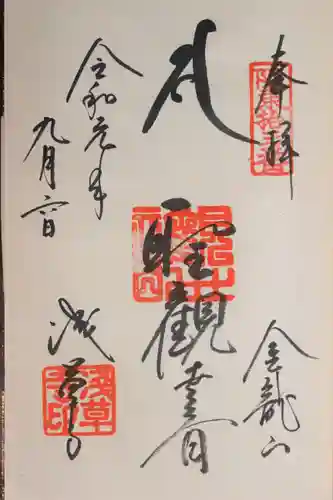 奉拝
金龍山
聖観世音
令和元年
九月六日
浅草寺